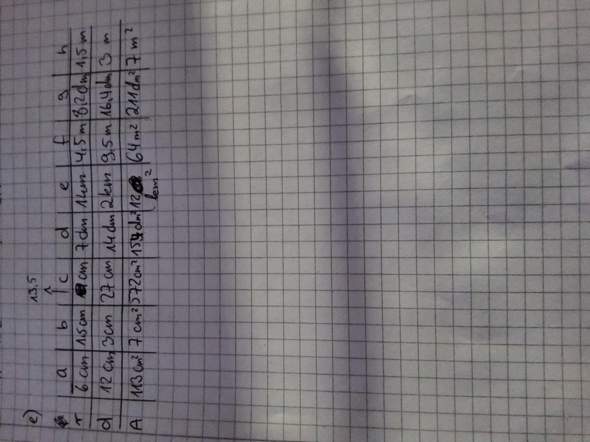 e)
13,5
a b c d e f g h
r 6 cm 1,5 cm cm 7 dm 1 km 4,5 m 8,2 dm 1,5 m
d 12 cm 3 cm 27 cm 14 dm 2 km 9,5 m 16,4 dm 3 m
A 113 cm² 7 cm² 572 cm² 154 dm² 12 64 m² 211 dm² 7 m²
km²